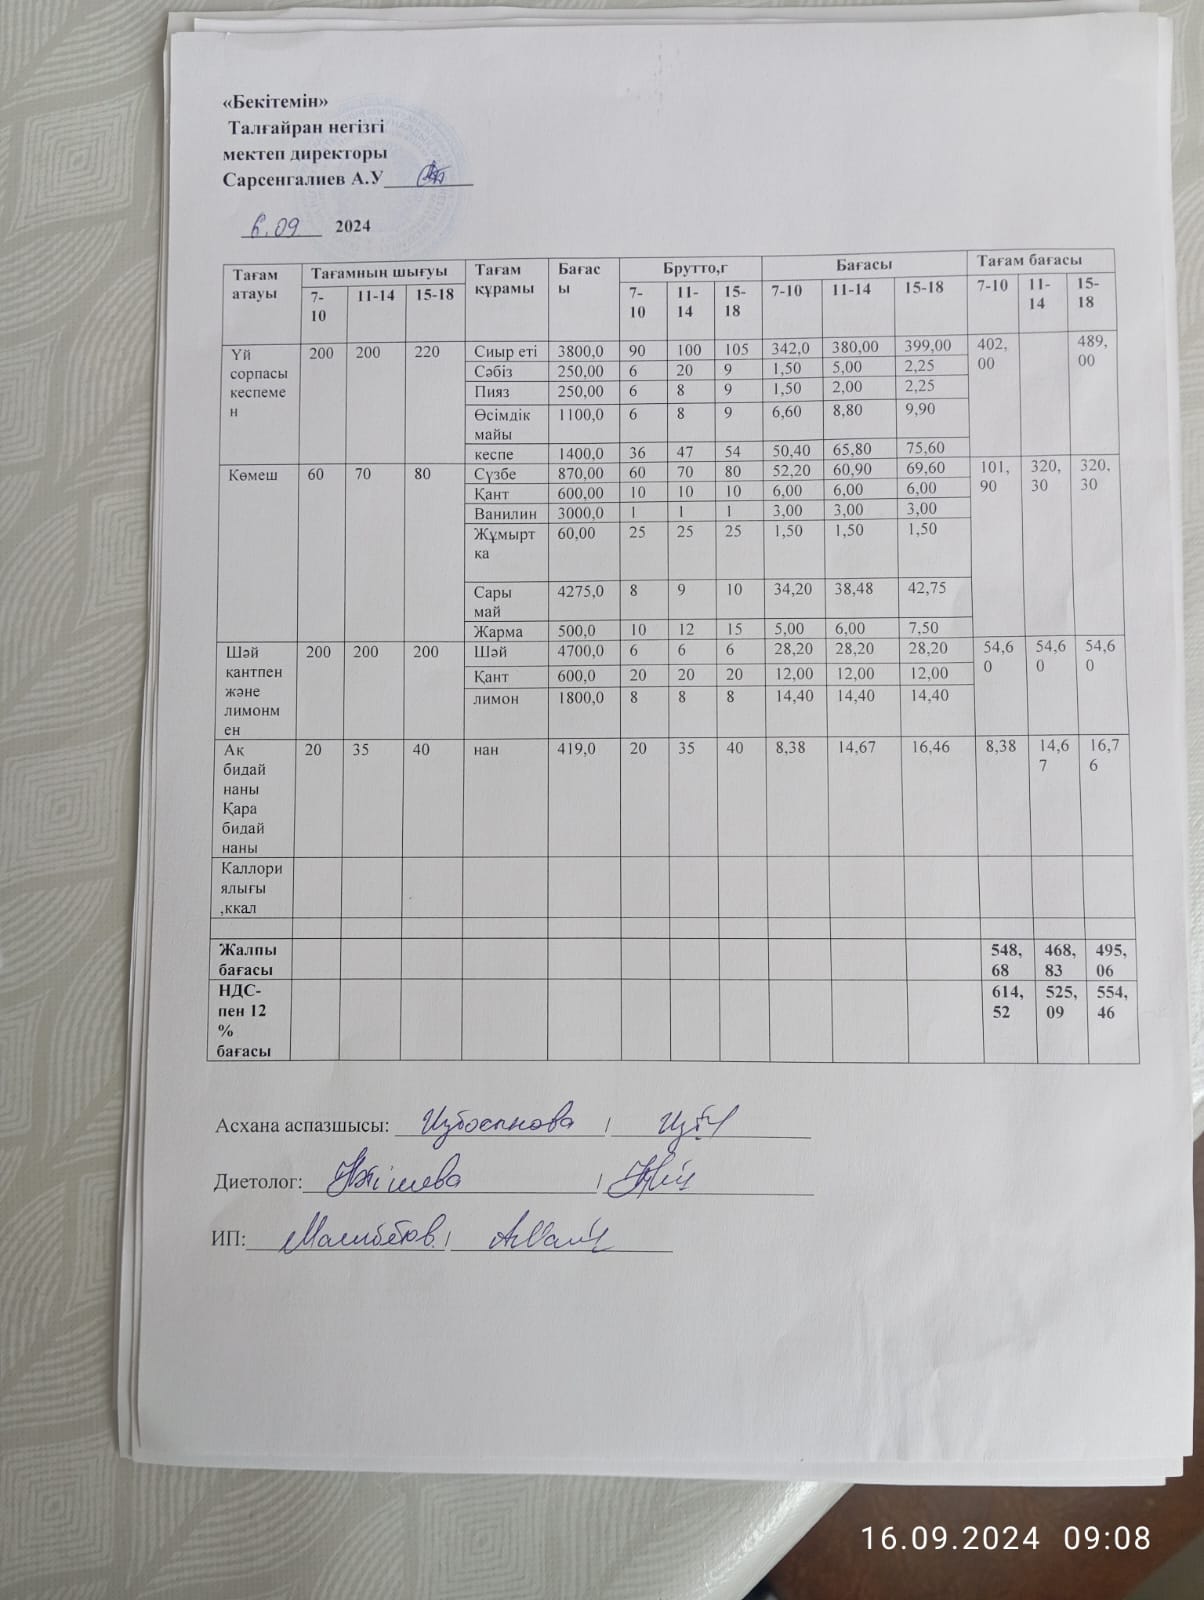 «Бекітемін»
Талғайран негізгі
мектеп директоры
Сарсенгалиев А.У
6.09 2024
Тағам атауы Тағамнын шығуы Тағам құрамы Бағасы Брутто,г Бағасы Тағам бағасы
7-10 11-14 15-18 7-10 11-14 15-18 7-10 11-14 15-18 7-10 11-14 15-18
Үй сорпасы кеспемен 200 200 220 Сиыр еті 3800,0 90 100 105 342,0 380,00 399,00 402,00 489,00
Сәбіз 250,00 6 20 9 1,50 5,00 2,25
Пияз 250,00 6 8 9 1,50 2,00 2,25
Өсімдік майы 1100,0 6 8 9 6,60 8,80 9,90
кеспе 1400,0 36 47 54 50,40 65,80 75,60
Көмеш 60 70 80 Сүзбе 870,00 60 70 80 52,20 60,90 69,60 101,90 320,30 320,30
Қант 600,00 10 10 10 6,00 6,00 6,00
Ванилин 3000,0 1 1 1 3,00 3,00 3,00
Жұмыртка 60,00 25 25 25 1,50 1,50 1,50
Сары май 4275,0 8 9 10 34,20 38,48 42,75
Жарма 500,0 10 12 15 5,00 6,00 7,50
Шәй кантпен және лимонмен 200 200 200 Шәй 4700,0 6 6 6 28,20 28,20 28,20 54,60 54,60 54,60
Қант 600,0 20 20 20 12,00 12,00 12,00
лимон 1800,0 8 8 8 14,40 14,40 14,40
Ақ бидай наны Қара бидай наны 20 35 40 нан 419,0 20 35 40 8,38 14,67 16,46 8,38 14,67 16,76
Каллориялығы ,ккал
Жалпы бағасы 548,68 468,83 495,06
НДС-пен 12 % бағасы 614,52 525,09 554,46
Асхана аспазшысы: /
Диетолог: /
ИП: /
16.09.2024 09:08